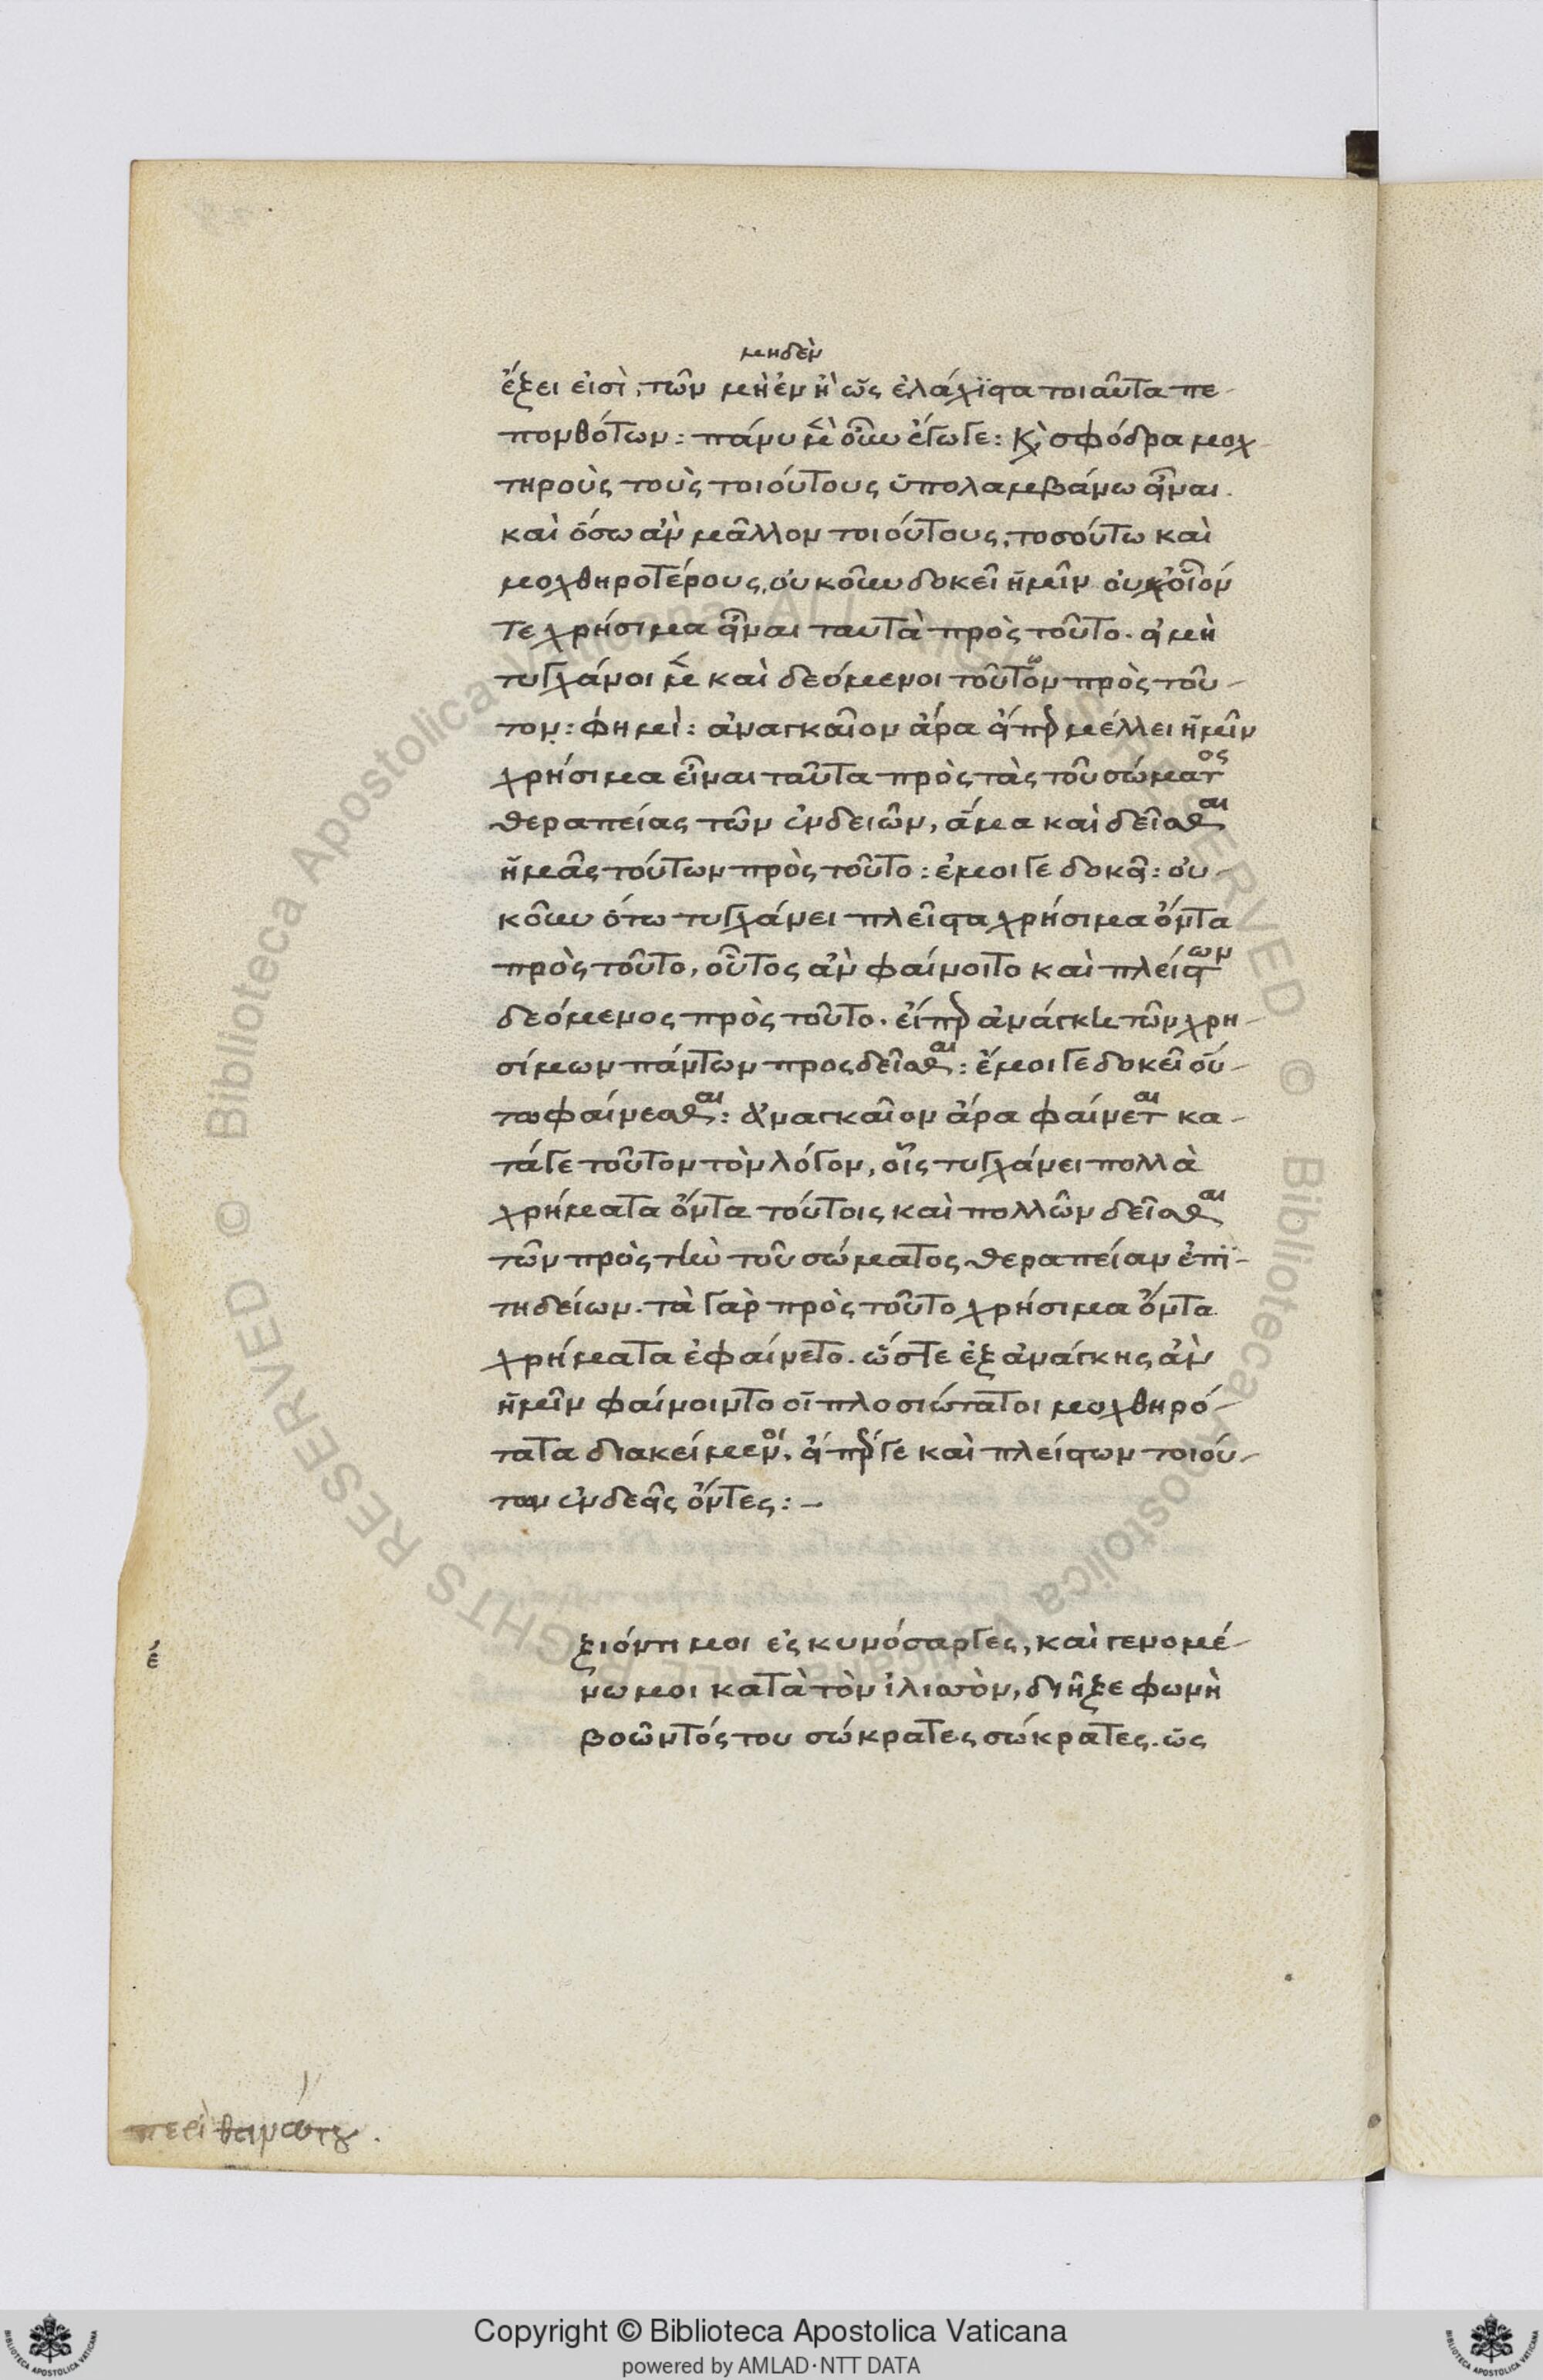 μηδὲν
ἕξει εἰσὶ, τῶν μὴ ἐν ἢ ὡς ἐλάχιστα τοιαῦτα πε-
πονθότων: πάνυ μὲν οὖν ἔγωγε: Κὶ σφόδρα μοχ-
τηροὺς τοὺς τοιούτους ὑπολαμβάνω εἶναι.
καὶ ὅσω ἂν μᾶλλον τοιούτους, τοσούτω καὶ
μοχθηροτέρους, οὐκοῦν δοκεῖ ἡμῖν οὐχ οἷόν
τε χρήσιμα εἶναι ταυτὰ πρὸς τοῦτο. εἰ μὴ
τυγχάνοι μὲν καὶ δεόμενοι τοῦτον πρὸς τοῦ-
τον: φημὶ: ἀναγκαῖον ἄρα εἴπερ μέλλει ἡμῖν
χρήσιμα εἶναι ταῦτα πρὸς τὰς τοῦ σώματος
θεραπείας τῶν ἐνδειῶν, ἅμα καὶ δεῖσθαι
ἡμᾶς τούτων πρὸς τοῦτο: ἐμοιγε δοκεῖ: οὐ-
κοῦν ὅτω τυγχάνει πλεῖστα χρήσιμα ὄντα
πρὸς τοῦτο, οὗτος ἂν φαίνοιτο καὶ πλείστων
δεόμενος πρὸς τοῦτο. εἴπερ ἀνάγκη τῶν χρη-
σίμων πάντων προςδεῖσθαι: ἔμοιγε δοκεῖ οὕ-
τω φαίνεσθαι: ἀναγκαῖον ἄρα φαίνεται κα-
τάγε τοῦτον τὸν λόγον, οἷς τυγχάνει πολλὰ
χρήματα ὄντα τούτοις καὶ πολλῶν δεῖσθαι
τῶν πρὸς τὴν τοῦ σώματος θεραπείαν ἐπι-
τηδείων. τὰ γὰρ πρὸς τοῦτο χρήσιμα ὄντα
χρήματα ἐφαίνετο. ὥστε ἐξ ἀνάγκης ἂν
ἡμῖν φαίνοιντο οἱ πλοσιώτατοι μοχθηρό-
τατα διακείμενοι, εἴπερ γε καὶ πλείστων τοιού-
των ἐνδεεῖς ὄντες: –
ἐ
ξιόντι μοι ἐς κυνόσαργες, καὶ γενομέ-
νω μοι κατὰ τὸν ἰλισσὸν, διῆξε φωνὴ
βοῶντός του σώκρατες σώκρατες. ὡς
περὶ θανάτου.
Copyright © Biblioteca Apostolica Vaticana
powered by AMLAD·NTT DATA